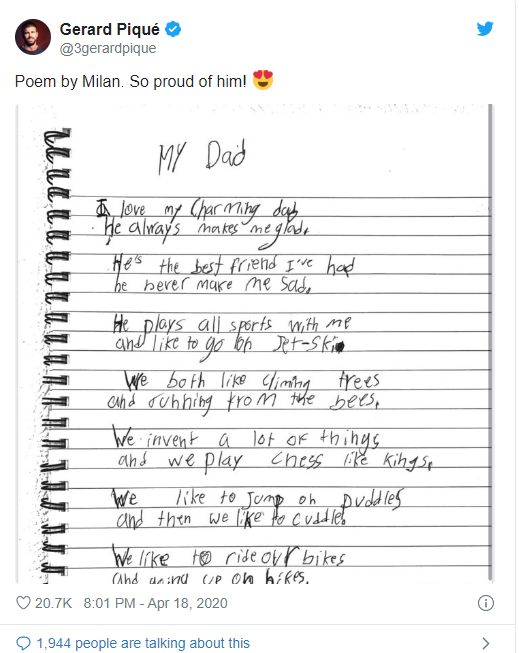 Gerard Piqué
@3gerardpique
Poem by Milan. So proud of him! 😍
MY Dad
I love my Charming dad
He always makes me glad.
He's the best friend I've had
he never make me sad.
He plays all sports with me
and like to go on Jet-Ski
We both like climing trees
and running from the bees.
We invent a lot of things
and we play chess like kings.
We like to Jump on puddles
and then we like to cuddle.
We like to ride our bikes
and going up on hikes.
20.7K 8:01 PM - Apr 18, 2020
1,944 people are talking about this